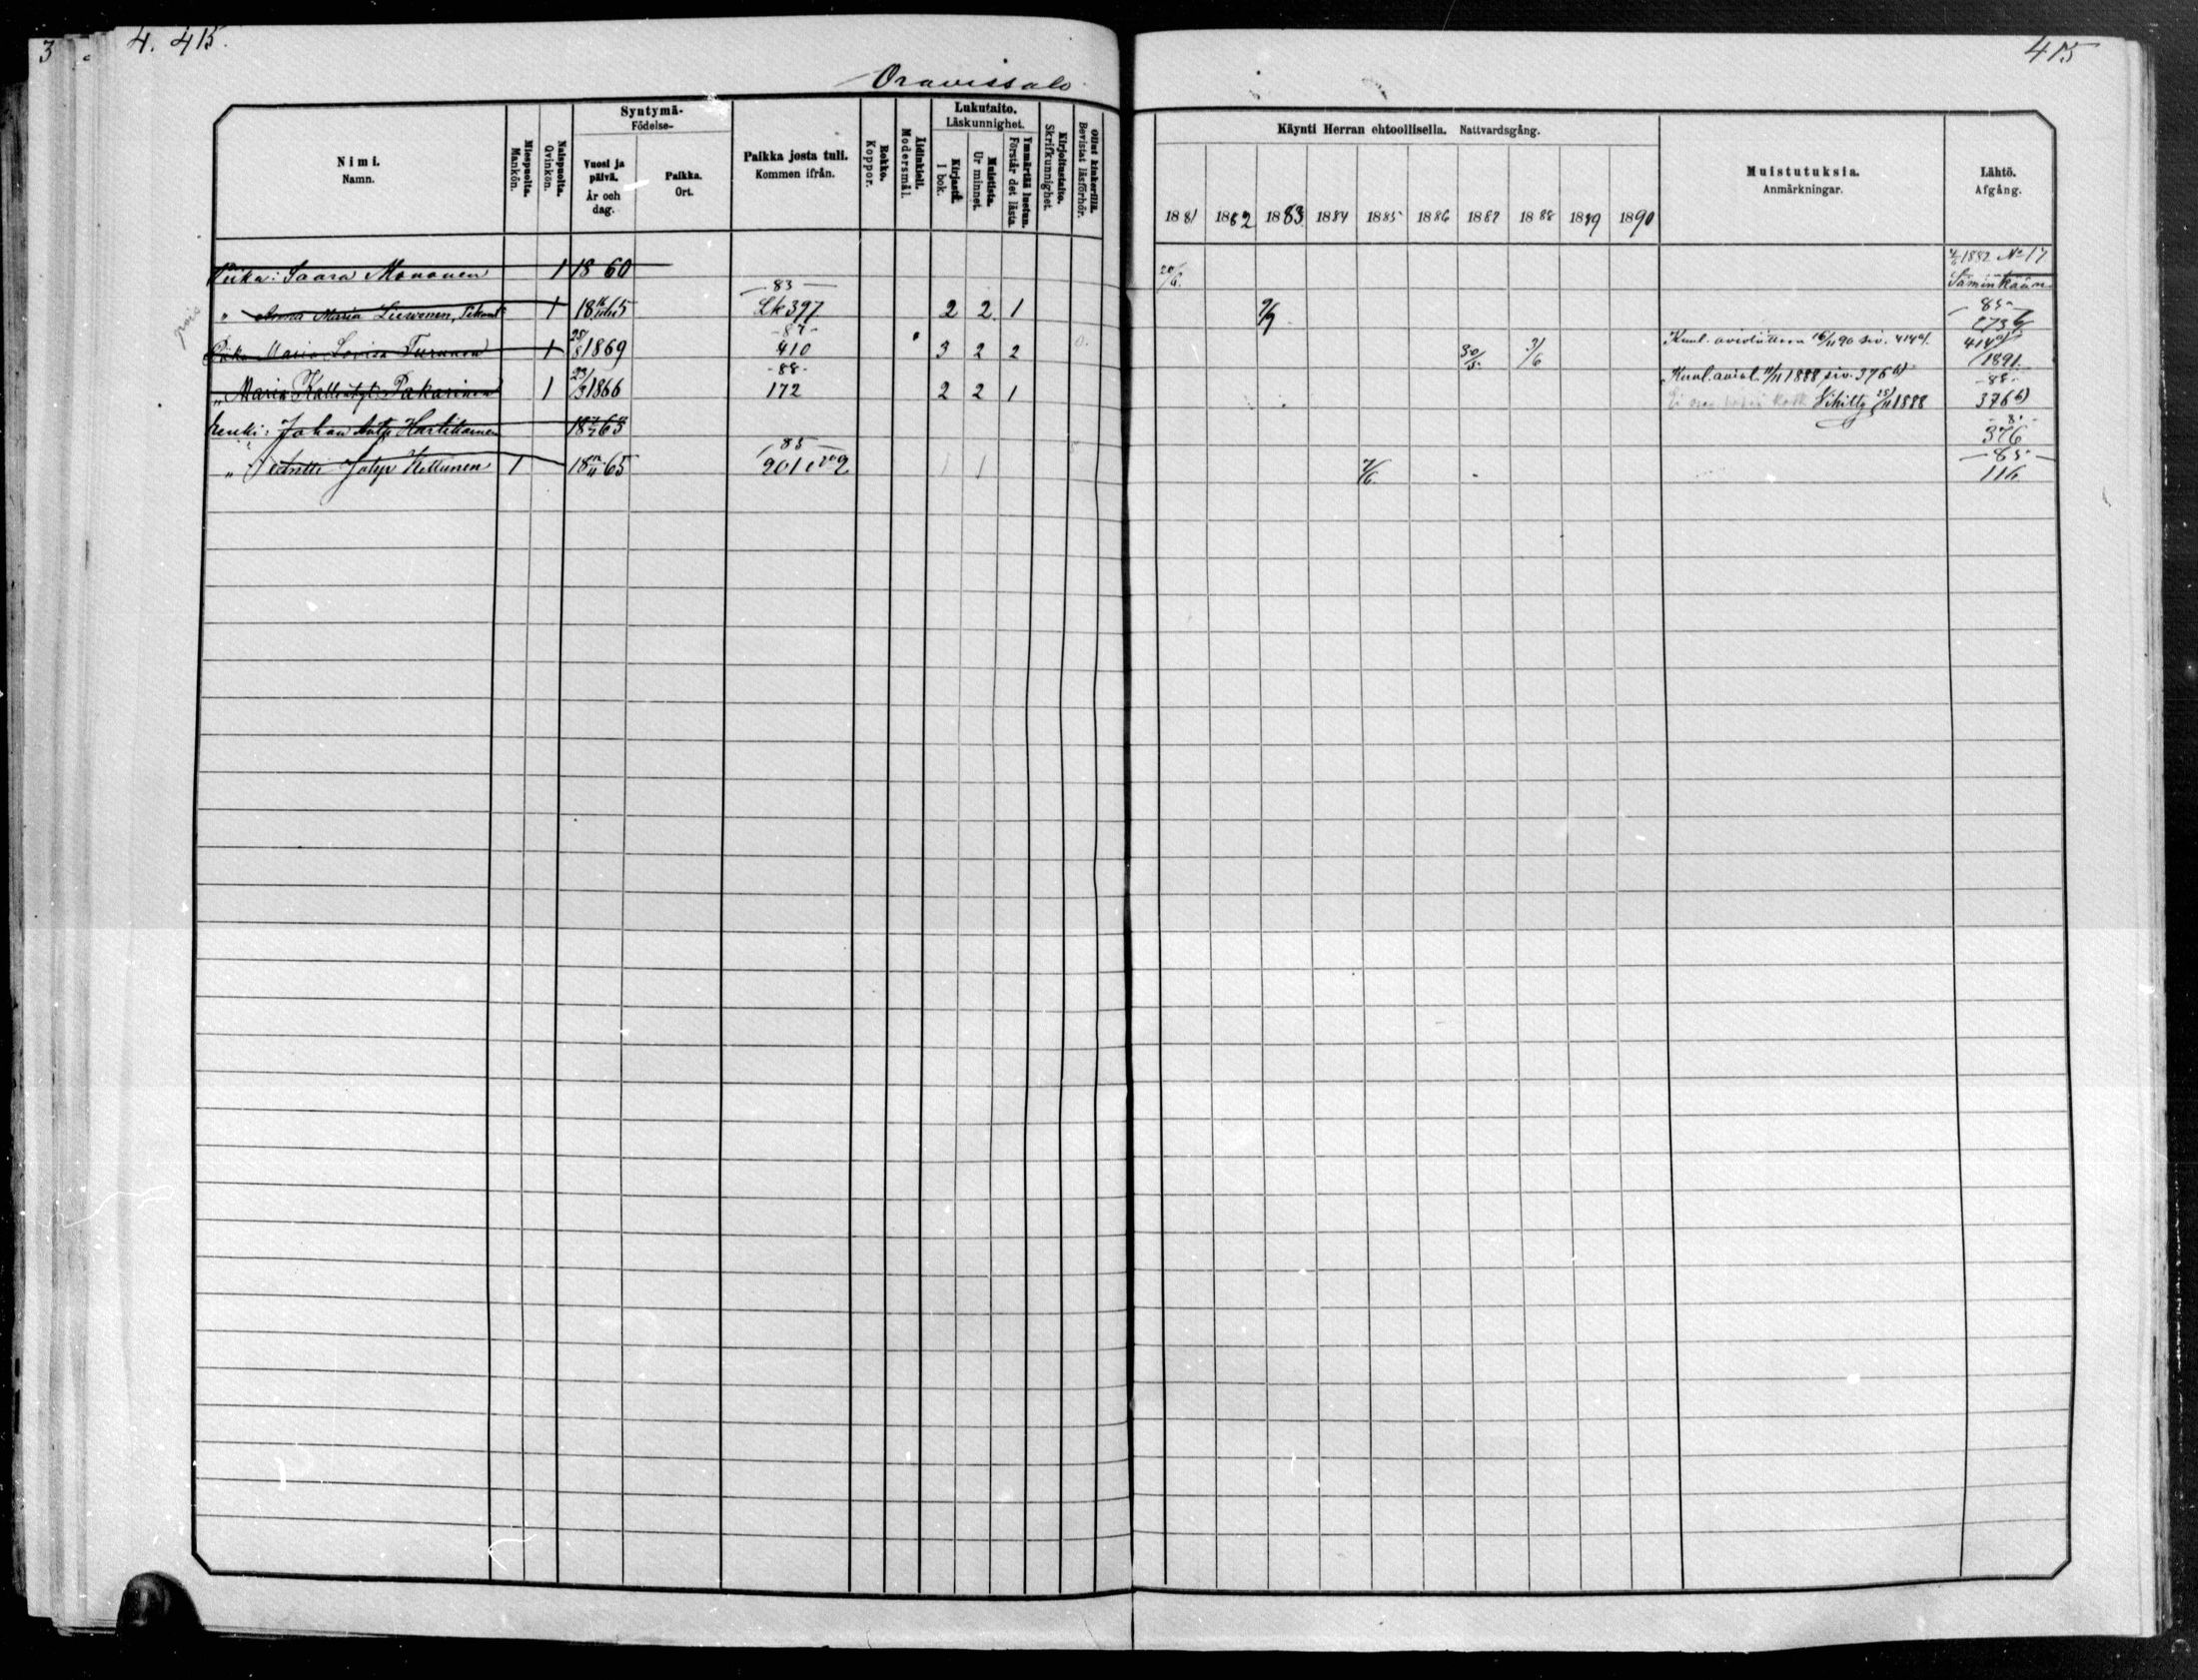 3
4. 415.
415
Oravissalo
Nimi.
Namn.
Miespuolta.
Mankön.
Naispuolta.
Qvinkön.
Syntymä-
Födelse-
Vuosi ja päivä.
År och dag.
Paikka.
Ort.
Paikka josta tuli.
Kommen ifrån.
Rokko.
Koppor.
Äidinkieli.
Modersmål.
Lukutaito.
Läskunnighet.
Kirjasta.
I bok.
Muistista.
Ur minnet.
Ymmärtää luetun.
Förstår det lästa.
Kirjoitustaito.
Skrifkunnighet.
Ollut kinkerillä.
Bevistat läsförhör.
Käynti Herran ehtoollisella. Nattvardsgång.
1881 1882 1883 1884 1885 1886 1887 1888 1889 1890
Muistutuksia.
Anmärkningar.
Lähtö.
Afgång.
Piika: Saara Mononen 1 1860 20/6. 1882 No 17
Säminkään
pois
83 85
" Anna Maria 1 65 Lk 397 2 2 1 273 b
87
Piika Maria Lovisa Turunen 1 1869 410 3 2 2 30/5. 3/6 16/11 90 siv. 414 a). 414 a)
1891.
88 88
" Maria Pakarinen 1 23/3 1866 172 2 2 1 11/11 1888 siv. 376 b)
Vihitty 25/11 1888 376 b)
Renki: Johan 65 376
85 85
" Antti Kettunen 1 65 201 1 1 7/6. 116